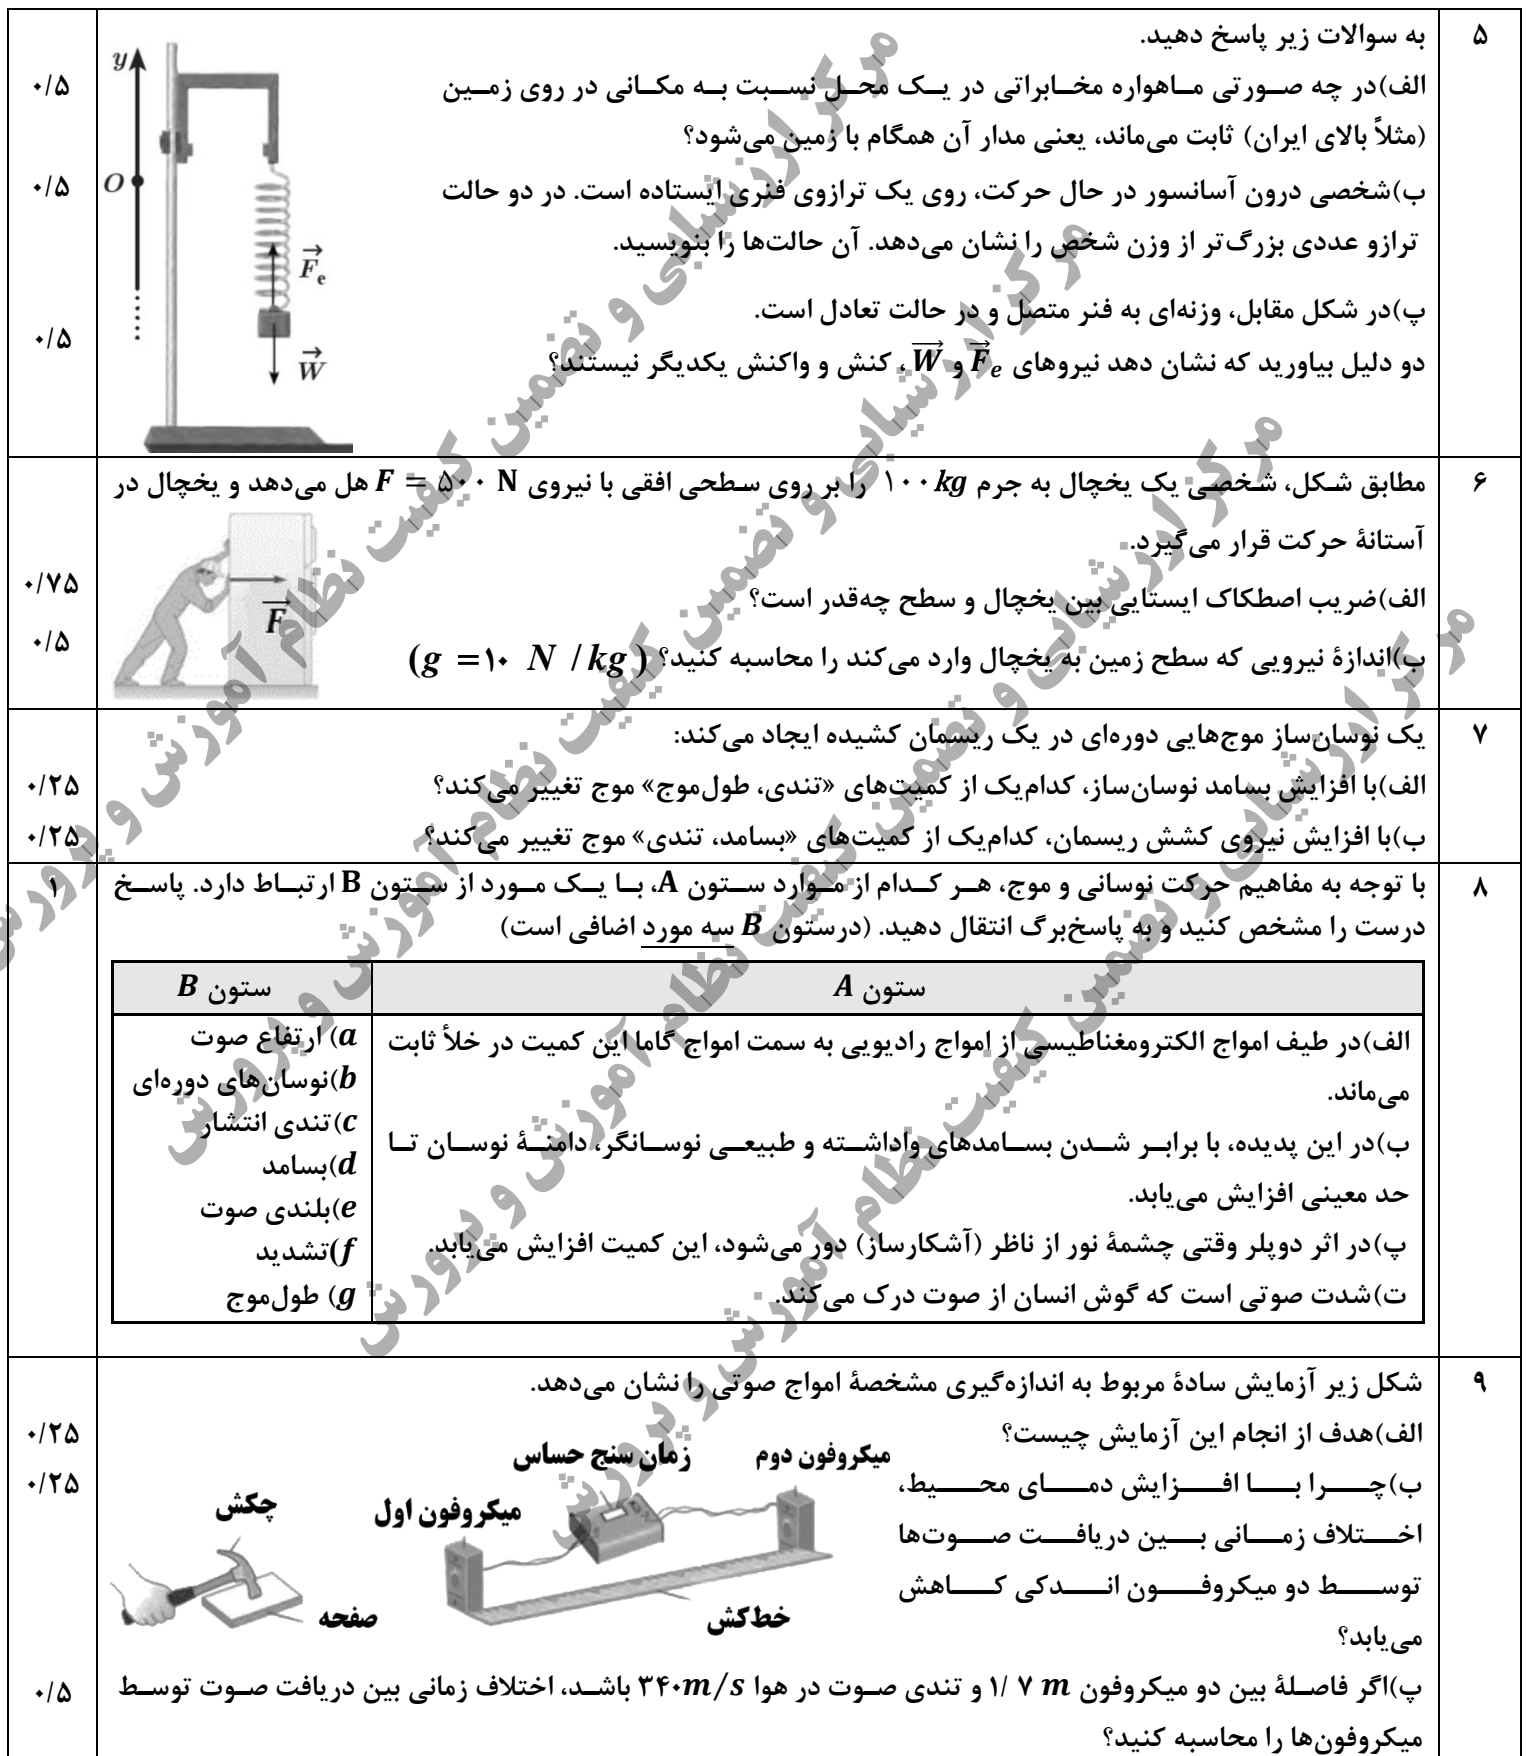 ۵
به سوالات زیر پاسخ دهید.
الف)در چه صورتی ماهواره مخابراتی در یک محل نسبت به مکانی در روی زمین
۰/۵
(مثلاً بالای ایران) ثابت می‌ماند، یعنی مدار آن همگام با زمین می‌شود؟
ب)شخصی درون آسانسور در حال حرکت، روی یک ترازوی فنری ایستاده است. در دو حالت
۰/۵
ترازو عددی بزرگ‌تر از وزن شخص را نشان می‌دهد. آن حالت‌ها را بنویسید.
پ)در شکل مقابل، وزنه‌ای به فنر متصل و در حالت تعادل است.
۰/۵
دو دلیل بیاورید که نشان دهد نیروهای F_e و W، کنش و واکنش یکدیگر نیستند؟
y
O
F_e
W
۶
مطابق شکل، شخصی یک یخچال به جرم ۱۰۰kg را بر روی سطحی افقی با نیروی F = ۵۰۰ N هل می‌دهد و یخچال در
آستانهٔ حرکت قرار می‌گیرد.
الف)ضریب اصطکاک ایستایی بین یخچال و سطح چه‌قدر است؟
۰/۷۵
ب)اندازهٔ نیرویی که سطح زمین به یخچال وارد می‌کند را محاسبه کنید؟ (g = ۱۰ N / kg)
۰/۵
F
۷
یک نوسان‌ساز موج‌هایی دوره‌ای در یک ریسمان کشیده ایجاد می‌کند:
الف)با افزایش بسامد نوسان‌ساز، کدام‌یک از کمیت‌های «تندی، طول‌موج» موج تغییر می‌کند؟
۰/۲۵
ب)با افزایش نیروی کشش ریسمان، کدام‌یک از کمیت‌های «بسامد، تندی» موج تغییر می‌کند؟
۰/۲۵
۸
با توجه به مفاهیم حرکت نوسانی و موج، هر کدام از موارد ستون A، با یک مورد از ستون B ارتباط دارد. پاسخ
۱
درست را مشخص کنید و به پاسخ‌برگ انتقال دهید. (درستون B سه مورد اضافی است)
ستون A
ستون B
الف)در طیف امواج الکترومغناطیسی از امواج رادیویی به سمت امواج گاما این کمیت در خلأ ثابت
می‌ماند.
ب)در این پدیده، با برابر شدن بسامدهای واداشته و طبیعی نوسانگر، دامنهٔ نوسان تا
حد معینی افزایش می‌یابد.
پ)در اثر دوپلر وقتی چشمهٔ نور از ناظر (آشکارساز) دور می‌شود، این کمیت افزایش می‌یابد.
ت)شدت صوتی است که گوش انسان از صوت درک می‌کند.
a) ارتفاع صوت
b)نوسان‌های دوره‌ای
c)تندی انتشار
d)بسامد
e)بلندی صوت
f)تشدید
g) طول‌موج
۹
شکل زیر آزمایش سادهٔ مربوط به اندازه‌گیری مشخصهٔ امواج صوتی را نشان می‌دهد.
الف)هدف از انجام این آزمایش چیست؟
۰/۲۵
ب)چرا با افزایش دمای محیط،
۰/۲۵
اختلاف زمانی بین دریافت صوت‌ها
توسط دو میکروفون اندکی کاهش
می‌یابد؟
میکروفون دوم
زمان سنج حساس
میکروفون اول
چکش
خط‌کش
صفحه
پ)اگر فاصلهٔ بین دو میکروفون ۱/۷ m و تندی صوت در هوا ۳۴۰m/s باشد، اختلاف زمانی بین دریافت صوت توسط
۰/۵
میکروفون‌ها را محاسبه کنید؟
مرکز ارزشیابی و تضمین کیفیت نظام آموزش و پرورش
مرکز ارزشیابی و تضمین کیفیت نظام آموزش و پرورش
مرکز ارزشیابی و تضمین کیفیت نظام آموزش و پرورش
مرکز ارزشیابی و تضمین کیفیت نظام آموزش و پرورش